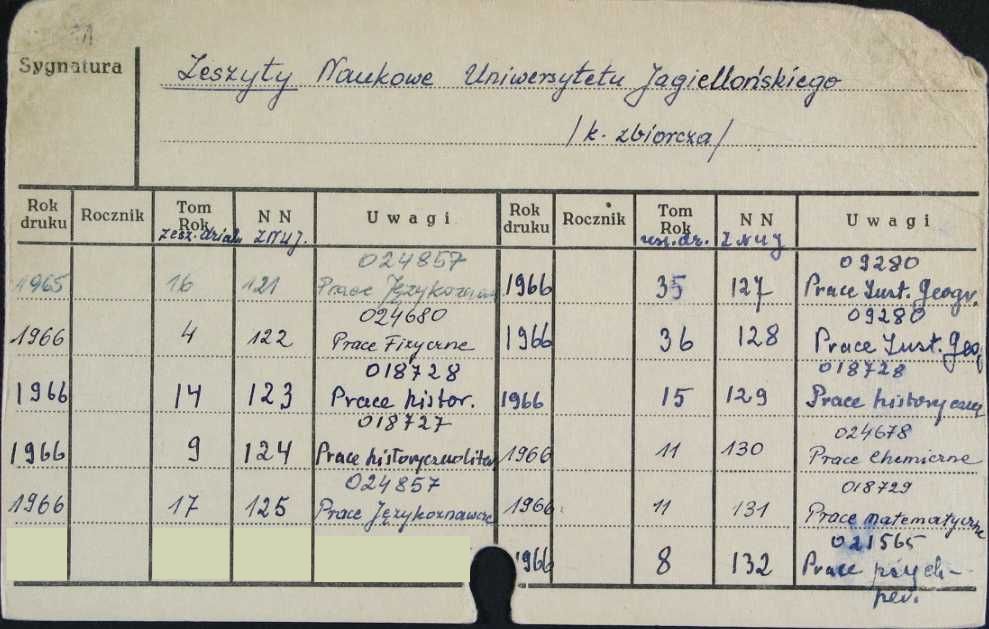 Sygnatura
Zeszyty Naukowe Uniwersytetu Jagiellońskiego
/k. zbiorcza/
Rok druku Rocznik Tom Rok N N Uwagi Rok druku Rocznik Tom Rok N N Uwagi
zesz. działu ZNUJ. zesz. dz. ZNUJ
024857 09280
1965 16 121 Prace Językoznaw 1966 35 127 Prace Inst. Geogr.
024680 09280
1966 4 122 Prace Fizyczne 1966 36 128 Prace Inst. Geog
018728 018728
1966 14 123 Prace histor. 1966 15 129 Prace historyczne
018727 024678
1966 9 124 Prace historycznoliter 1966 11 130 Prace Chemiczne
024857 018729
1966 17 125 Prace Językoznawcze 1966 11 131 Prace matematyczne
021565
1966 8 132 Prace psych-